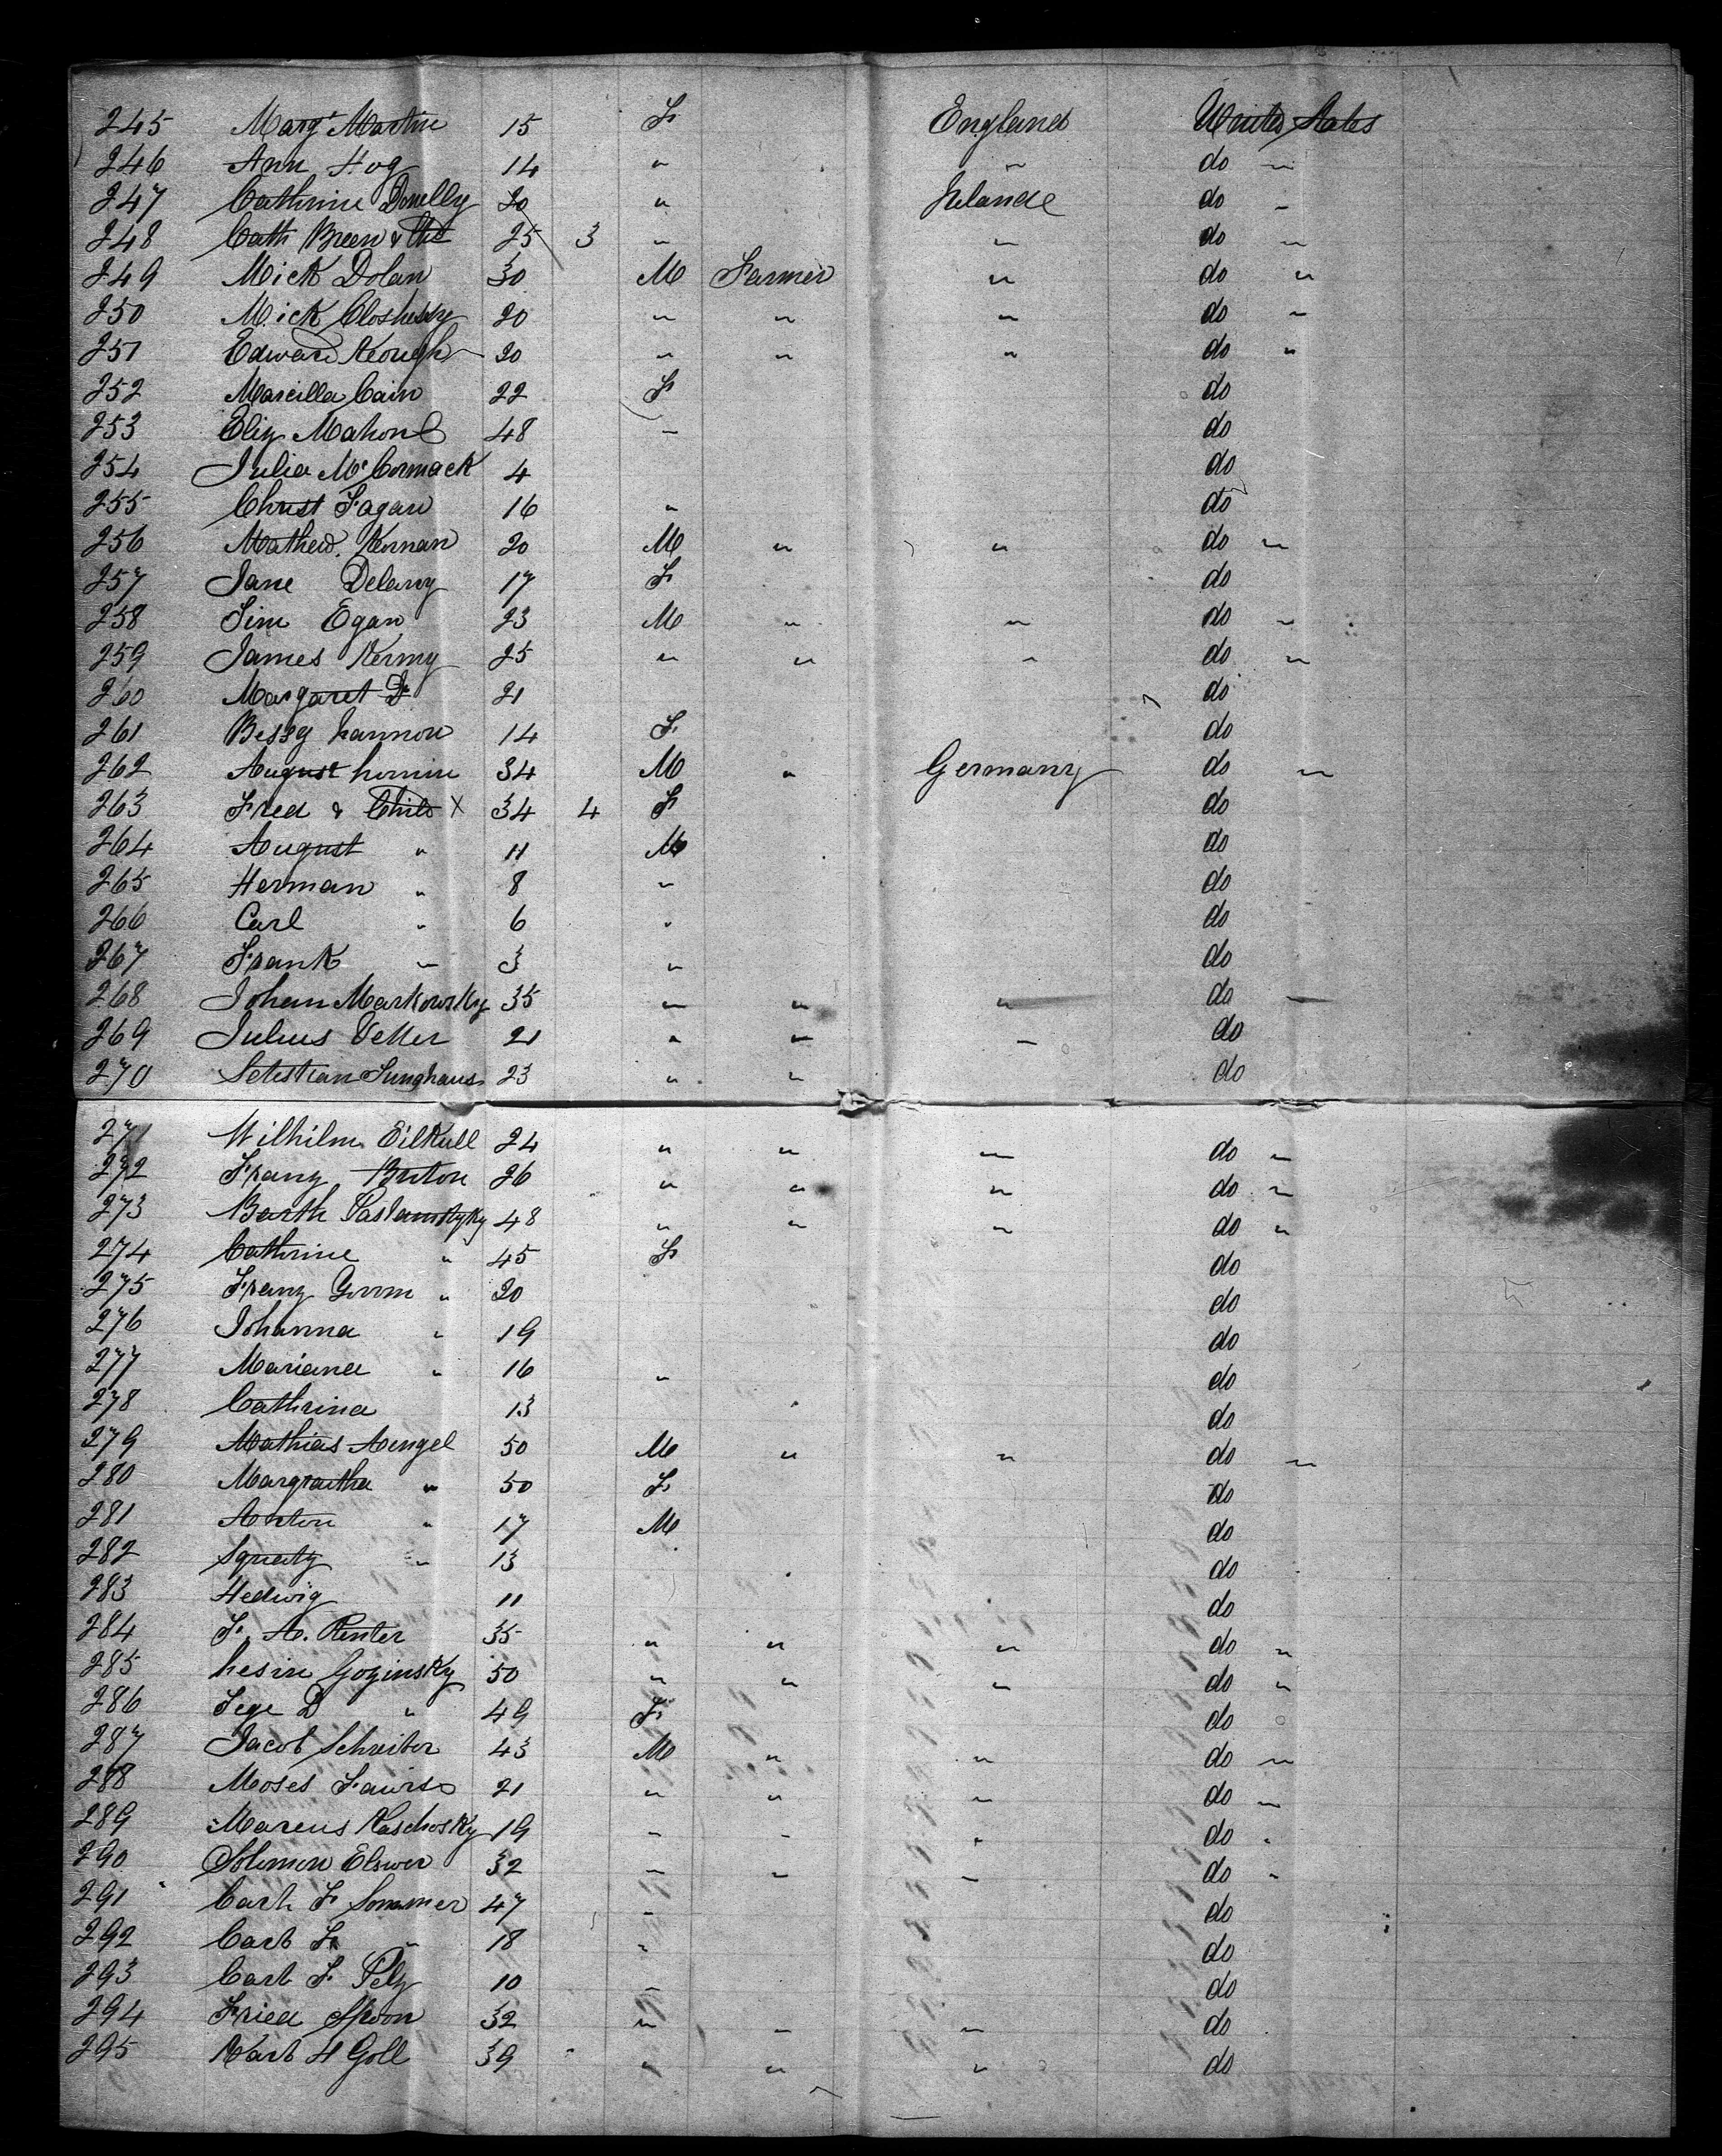 245 Margt Martin 15 F England United States
246 Ann Hog 14 " " do "
247 Cathrine Donelly 20 " Irlande do "
248 Cath Breen & Chd 25 3 " " do "
249 Mick Dolan 30 M Farmer " do "
250 Mick 20 " " " do "
251 Edward Keough 20 " " " do "
252 Marcilla Cain 22 F do
253 Eliz Mahon 48 " do
254 Julia McCormack 4 do
255 Christ Fagan 16 " do
256 Mathew Kernan 20 M " " do "
257 Jane Delany 17 F do
258 Jim Egan 23 M " " do "
259 James Kermy 25 " " " do "
260 Margaret Do 21 do
261 Bessy Lannon 14 F do
262 August 34 M " Germany do "
263 Fred & Child X 34 4 F do
264 August " 11 M do
265 Herman " 8 " do
266 Carl " 6 " do
267 Frank " 3 " do
268 Johan Markowsky 35 " " " do "
269 Julius Vetter 21 " " " do
270 Sebstian Junghaus 23 " " do
271 Wilhilm Eilkull 24 " " " do "
272 Franz Briton 26 " " " do "
273 Barth 48 " " " do "
274 Cathrine " 45 F do
275 Franz " 20 do
276 Johanna " 19 do
277 Mariana " 16 " do
278 Cathrina 13 do
279 Mathias Aengel 50 M " " do "
280 Margraitha " 50 F do
281 Anton " 17 M do
282 Ignatz " 13 do
283 Hedwig 11 do
284 F. A. Renter 35 " " " do "
285 Goginsky 50 " " " do "
286 D " 49 F do
287 Jacob Schreiber 43 M " " do "
288 Moses 21 " " " do "
289 Marcus Kaschosky 19 " " " do "
290 Solomon Elswer 32 " " " do "
291 Carl F Sommer 47 " do
292 Carl F " 18 " do
293 Carl F. Pelz 10 " do
294 Fried Spoon 32 " " " do
295 Karl H Goll 39 " " " do